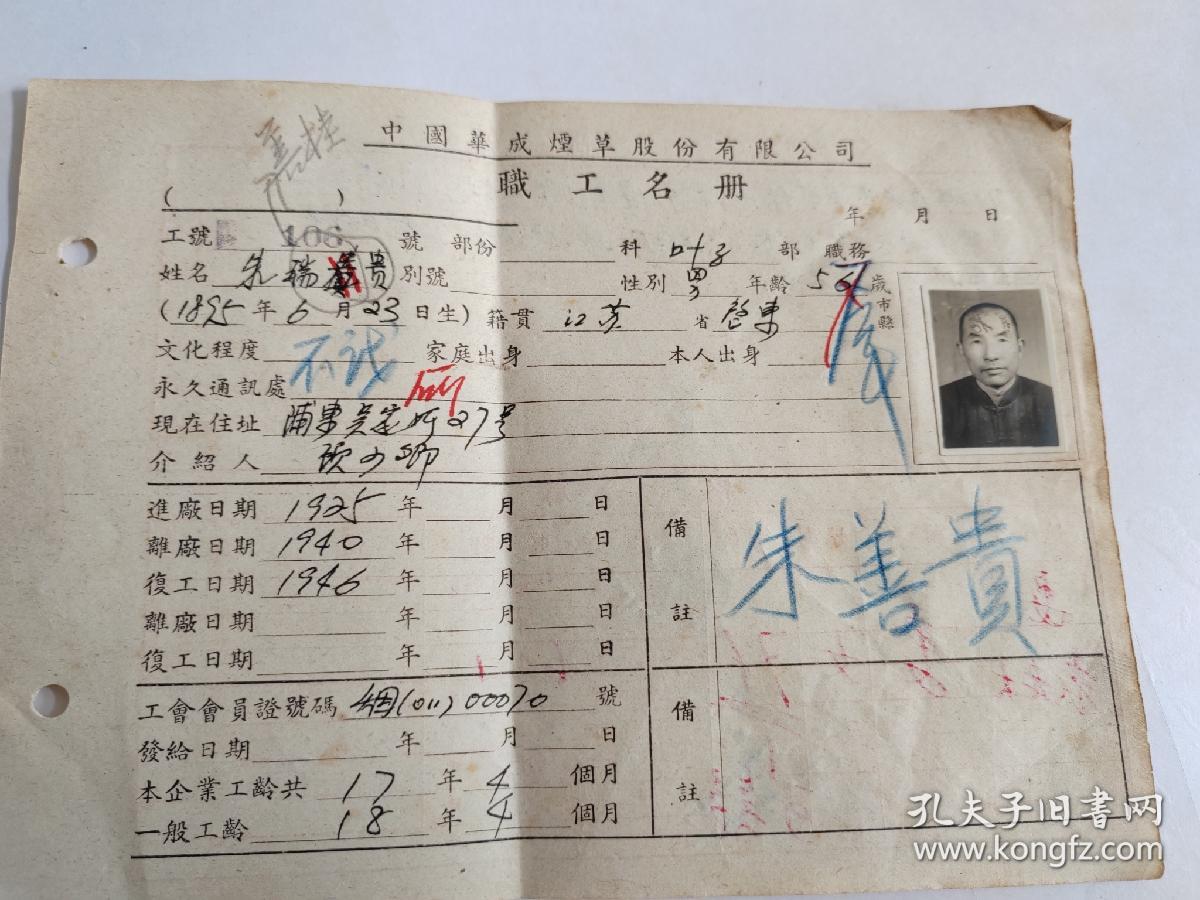 中國華成煙草股份有限公司
職工名册
( )
年 月 日
工號 106 號 部份 科 叶子 部 職務
姓名 朱瑞 貴 別號 性別 男 年齡 56 歲
(1895年6月23日生) 籍貫 江苏 省 啓東 市縣
文化程度 不识 家庭出身 本人出身
永久通訊處
現在住址 浦東吳家所27号
介紹人
進廠日期 1925 年 月 日
離廠日期 1940 年 月 日
復工日期 1946 年 月 日
離廠日期 年 月 日
復工日期 年 月 日
備註 朱善貴
工會會員證號碼 烟(011)00070 號
發給日期 年 月 日
本企業工齡共 17 年 4 個月
一般工齡 18 年 4 個月
備註
孔夫子旧书网
www.kongfz.com